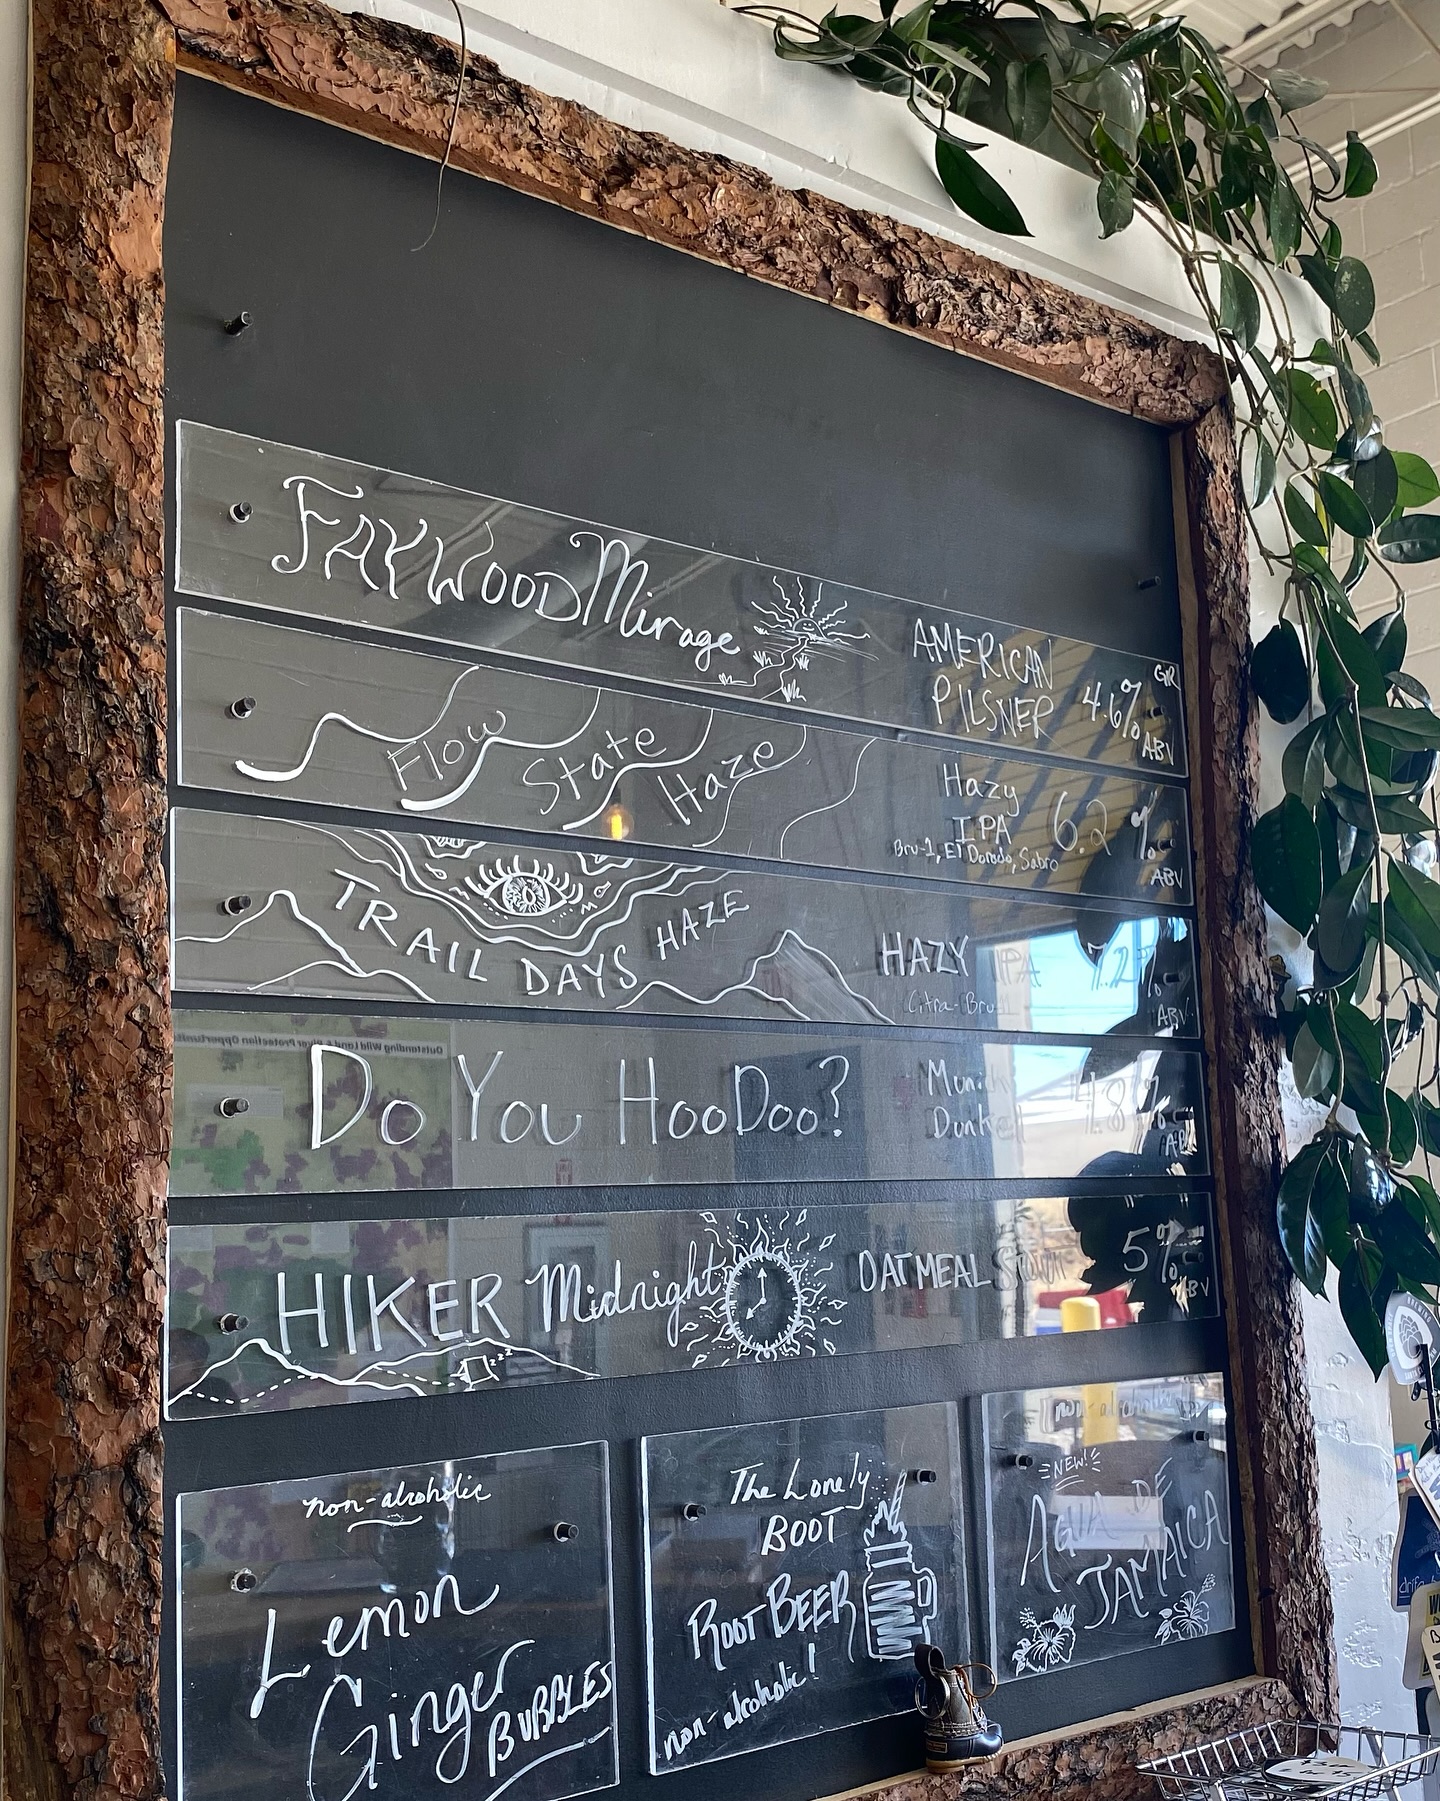 FAYWOOD Mirage
AMERICAN
PILSNER
4.6%
GR
ABV
Flow State Haze
Hazy
IPA
Bru-1, El Dorado, Sabro
6.2 %
ABV
TRAIL DAYS HAZE
HAZY IPA
Citra-Bru-1
7.2%
ABV
Outstanding Wild Land & River Protection
DO YOU HOODOO?
Munich
Dunkel
4.8%
ABV
HIKER Midnight
zzz
OATMEAL Stout
5%
ABV
non-alcoholic
Lemon
Ginger
BUBBLES
The Lonely
BOOT
ROOT BEER
non-alcoholic!
non-alcoholic
NEW!
AGUA DE
JAMAICA